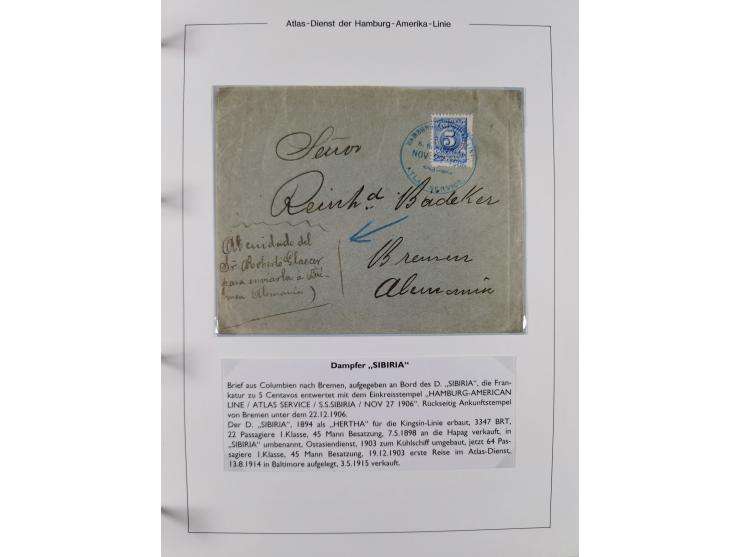 Atlas-Dienst der Hamburg-Amerika-Linie
5
NOV
ATLAS SERVICE
Señor
Reinhd Badeker
(Al cuidado del
Sr. Roberto
para enviarla á
Alemania)
Bremen
Alemania
Dampfer „SIBIRIA“
Brief aus Columbien nach Bremen, aufgegeben an Bord des D. „SIBIRIA“, die Fran-
katur zu 5 Centavos entwertet mit dem Einkreisstempel „HAMBURG-AMERICAN
LINE / ATLAS SERVICE / S.S.SIBIRIA / NOV 27 1906“. Rückseitig Ankunftstempel
von Bremen unter dem 22.12.1906.
Der D. „SIBIRIA“, 1894 als „HERTHA“ für die Kingsin-Linie erbaut, 3347 BRT,
22 Passagiere 1.Klasse, 45 Mann Besatzung, 7.5.1898 an die Hapag verkauft, in
„SIBIRIA“ umbenannt, Ostasiendienst, 1903 zum Kühlschiff umgebaut, jetzt 64 Pas-
sagiere 1.Klasse, 45 Mann Besatzung, 19.12.1903 erste Reise im Atlas-Dienst,
13.8.1914 in Baltimore aufgelegt, 3.5.1915 verkauft.